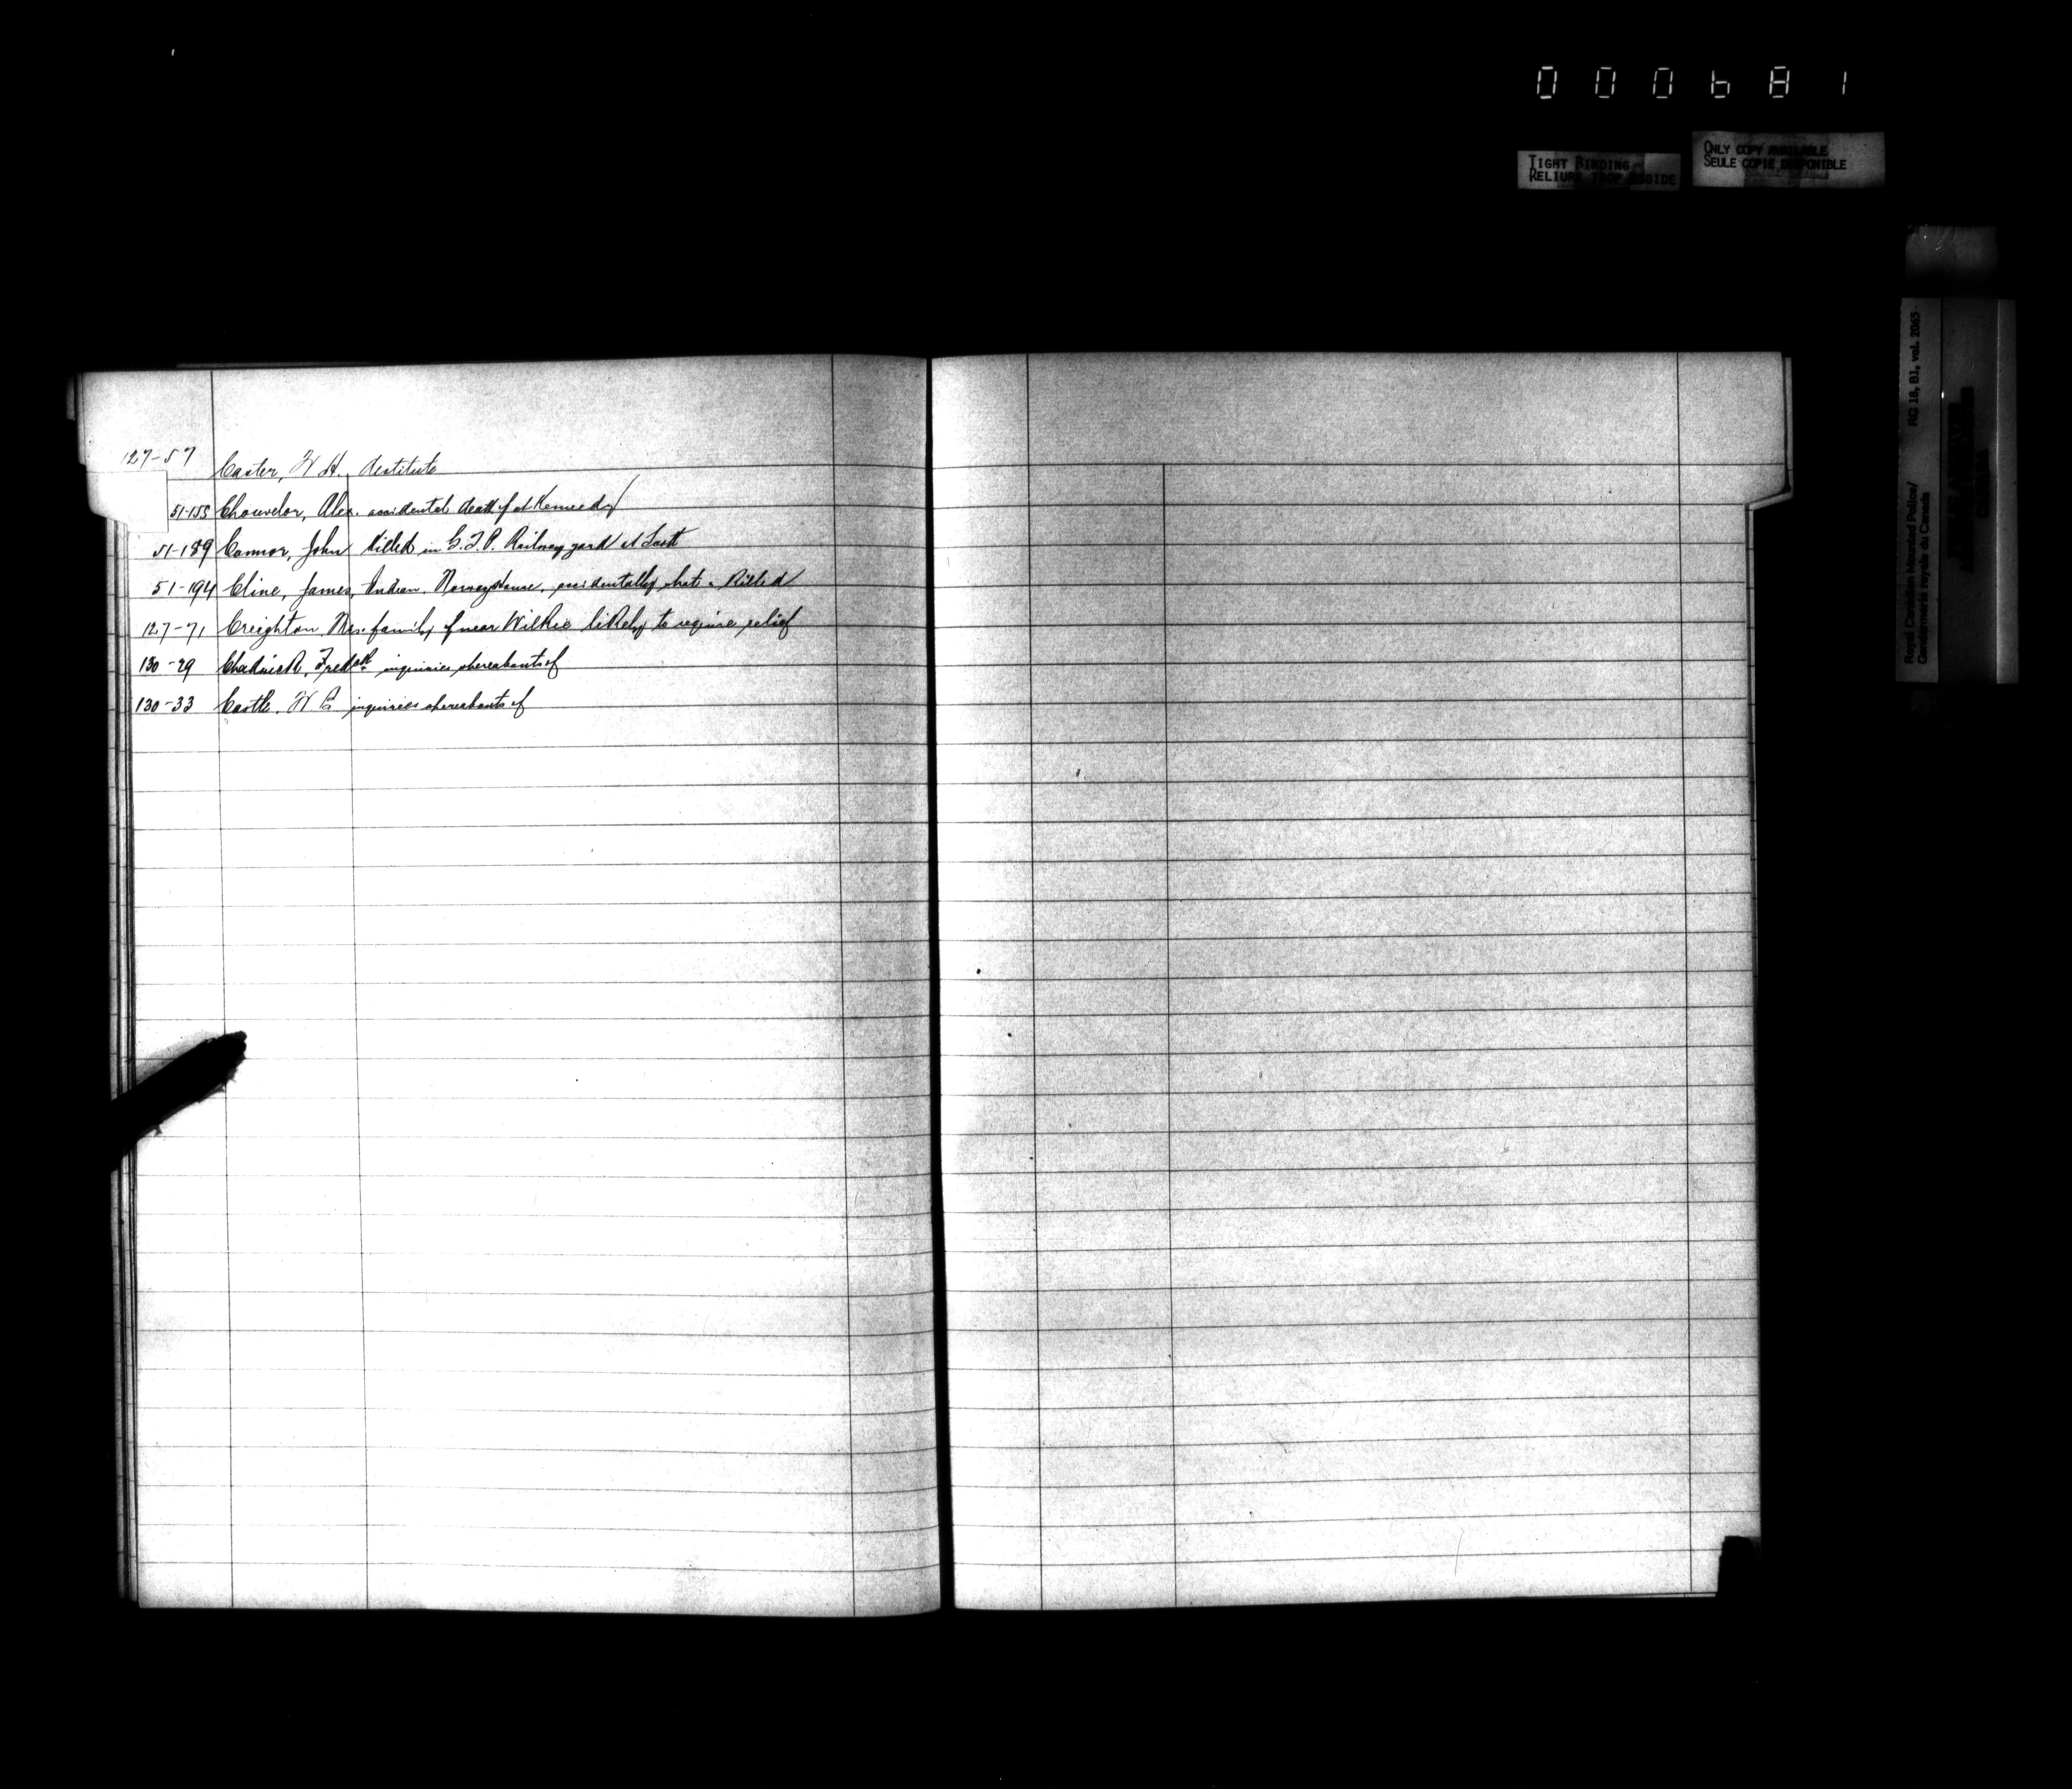 000681
TIGHT BINDING
RELIURE TROP RIGIDE
ONLY COPY AVAILABLE
SEULE COPIE DISPONIBLE
Royal Canadian Mounted Police/
Gendarmerie royale du Canada
RG 18, B1, vol. 2065
127-57 Caster, W. H. destitute
51-155 Chouvelor, Alex. accidental death of at Kennedy
51-189 Connor, John killed in G.T.P. Railway yard at Scott
51-194 Cline, James, Indian, Norway House, accidentally shot & killed
127-71 Creighton Mrs. family of near Wilkie likely to require relief
130-29 Chadwick, Fred inquiries whereabouts of
130-33 Castle, W. inquiries whereabouts of